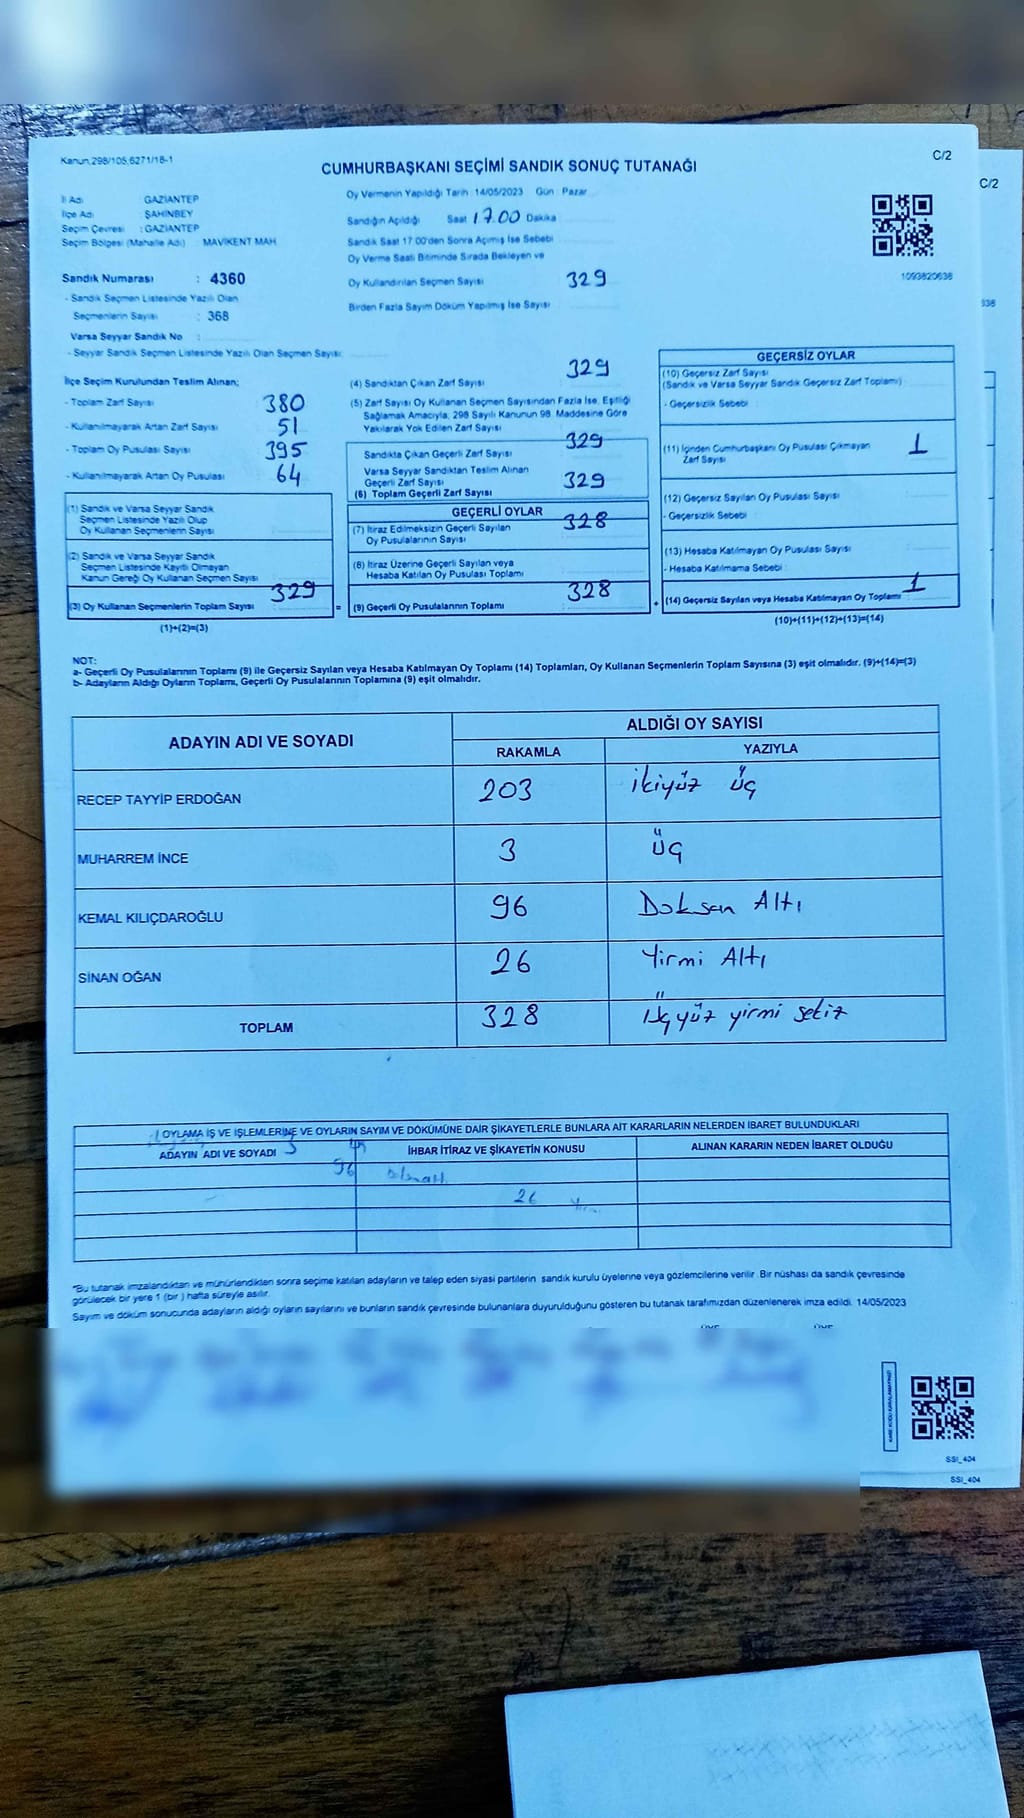 Kanun.298/105,6271/18-1
C/2
CUMHURBAŞKANI SEÇİMİ SANDIK SONUÇ TUTANAĞI
C/2
İl Adı GAZİANTEP
İlçe Adı ŞAHİNBEY
Seçim Çevresi : GAZİANTEP
Seçim Bölgesi (Mahalle Adı) MAVİKENT MAH
Oy Vermenin Yapıldığı Tarih : 14/05/2023 Gün : Pazar
Sandığın Açıldığı Saat 17.00 Dakika
Sandık Saat 17.00'den Sonra Açımış İse Sebebi
Oy Verme Saati Bitiminde Sırada Bekleyen ve
Oy Kullandırılan Seçmen Sayısı 329
Birden Fazla Sayım Döküm Yapılmış İse Sayısı
1093820636
Sandık Numarası : 4360
- Sandık Seçmen Listesinde Yazılı Olan
Seçmenlerin Sayısı : 368
Varsa Seyyar Sandık No :
- Seyyar Sandık Seçmen Listesinde Yazılı Olan Seçmen Sayısı:
İlçe Seçim Kurulundan Teslim Alınan;
- Toplam Zarf Sayısı 380
- Kullanılmayarak Artan Zarf Sayısı 51
- Toplam Oy Pusulası Sayısı 395
- Kullanılmayarak Artan Oy Pusulası 64
(1) Sandık ve Varsa Seyyar Sandık
Seçmen Listesinde Yazılı Olup
Oy Kullanan Seçmenlerin Sayısı
(2) Sandık ve Varsa Seyyar Sandık
Seçmen Listesinde Kayıtlı Olmayan
Kanun Gereği Oy Kullanan Seçmen Sayısı
(3) Oy Kullanan Seçmenlerin Toplam Sayısı 329
(1)+(2)=(3)
(4) Sandıktan Çıkan Zarf Sayısı 329
(5) Zarf Sayısı Oy Kullanan Seçmen Sayısından Fazla İse, Eşitliği
Sağlamak Amacıyla, 298 Sayılı Kanunun 98. Maddesine Göre
Yakılarak Yok Edilen Zarf Sayısı
Sandıkta Çıkan Geçerli Zarf Sayısı 329
Varsa Seyyar Sandıktan Teslim Alınan
Geçerli Zarf Sayısı
(6) Toplam Geçerli Zarf Sayısı 329
GEÇERLİ OYLAR
(7) İtiraz Edilmeksizin Geçerli Sayılan
Oy Pusulalarının Sayısı 328
(8) İtiraz Üzerine Geçerli Sayılan veya
Hesaba Katılan Oy Pusulası Toplamı
= (9) Geçerli Oy Pusulalarının Toplamı 328
GEÇERSİZ OYLAR
(10) Geçersiz Zarf Sayısı
(Sandık ve Varsa Seyyar Sandık Geçersiz Zarf Toplamı)
- Geçersizlik Sebebi :
(11) İçinden Cumhurbaşkanı Oy Pusulası Çıkmayan
Zarf Sayısı 1
(12) Geçersiz Sayılan Oy Pusulası Sayısı
- Geçersizlik Sebebi :
(13) Hesaba Katılmayan Oy Pusulası Sayısı
- Hesaba Katılmama Sebebi :
+ (14) Geçersiz Sayılan veya Hesaba Katılmayan Oy Toplamı 1
(10)+(11)+(12)+(13)=(14)
NOT:
a- Geçerli Oy Pusulalarının Toplamı (9) ile Geçersiz Sayılan veya Hesaba Katılmayan Oy Toplamı (14) Toplamları, Oy Kullanan Seçmenlerin Toplam Sayısına (3) eşit olmalıdır. (9)+(14)=(3)
b- Adayların Aldığı Oyların Toplamı, Geçerli Oy Pusulalarının Toplamına (9) eşit olmalıdır.
ADAYIN ADI VE SOYADI
ALDIĞI OY SAYISI
RAKAMLA YAZIYLA
RECEP TAYYİP ERDOĞAN 203 ikiyüz üç
MUHARREM İNCE 3 üç
KEMAL KILIÇDAROĞLU 96 Doksan Altı
SİNAN OĞAN 26 Yirmi Altı
TOPLAM 328 Üçyüz yirmi sekiz
OYLAMA İŞ VE İŞLEMLERİNE VE OYLARIN SAYIM VE DÖKÜMÜNE DAİR ŞİKAYETLERLE BUNLARA AİT KARARLARIN NELERDEN İBARET BULUNDUKLARI
ADAYIN ADI VE SOYADI 3 İHBAR İTİRAZ VE ŞİKAYETİN KONUSU ALINAN KARARIN NEDEN İBARET OLDUĞU
96
26
*Bu tutanak imzalandıktan ve mühürlendikten sonra seçime katılan adayların ve talep eden siyasi partilerin sandık kurulu üyelerine veya gözlemcilerine verilir. Bir nüshası da sandık çevresinde
görülecek bir yere 1 (bir ) hafta süreyle asılır.
Sayım ve döküm sonucunda adayların aldığı oyların sayılarını ve bunların sandık çevresinde bulunanlara duyurulduğunu gösteren bu tutanak tarafımızdan düzenlenerek imza edildi. 14/05/2023
SSI_404
SSI_404